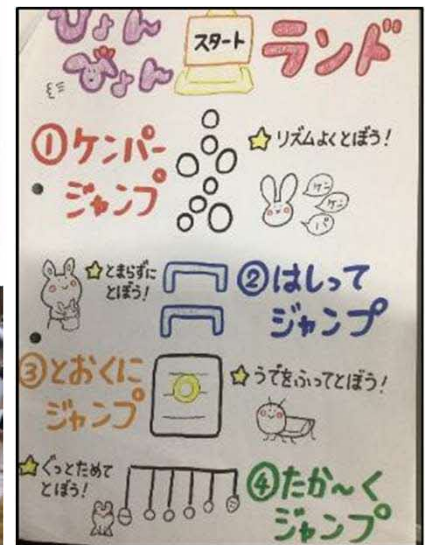 ぴょん
ぴょん
スタート
ランド
①ケンパー
ジャンプ
リズムよくとぼう!
ケン
ケン
パ
とまらずに
とぼう!
②はしって
ジャンプ
③とおくに
ジャンプ
うでをふってとぼう!
ぐっとためて
とぼう!
④たか〜く
ジャンプ